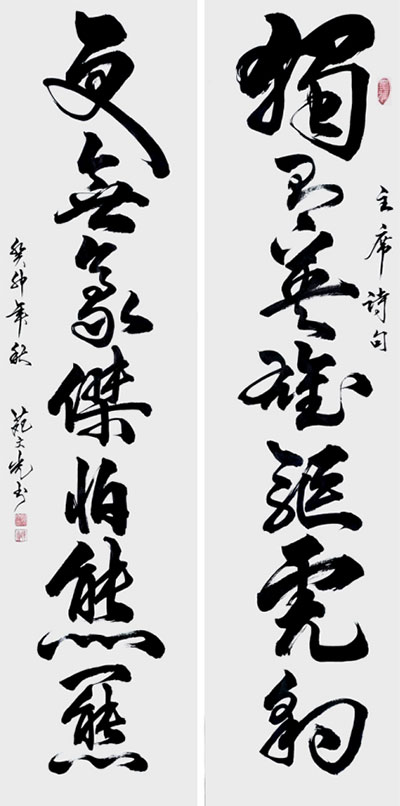 獨有英雄驅虎豹
主席詩句
更無豪傑怕熊羆
癸卯年秋